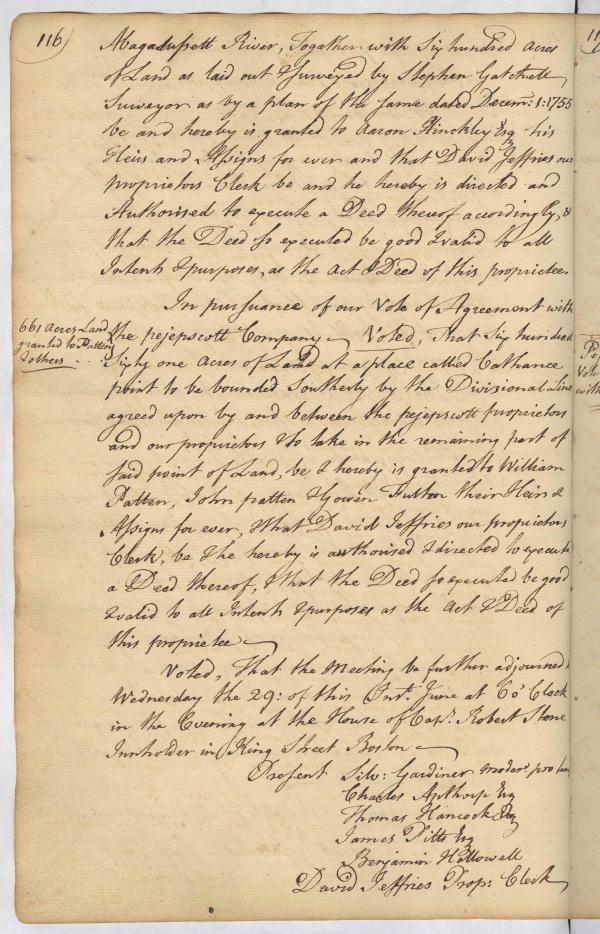 116
Magadussett River, Together with Six hundred acres
of Land as laid out & Surveyed by Stephen Gatchell
Surveyor as by a plan of the same dated Decem: 1: 1755
be and hereby is granted to Aaron Hinchley Esq his
Heirs and Assigns for ever and that David Jeffries our
proprietors Clerk be and he hereby is directed and
Authorised to execute a Deed thereof accordingly, &
that the Deed so executed be good & valid to all
Intents & purposes, as the act & Deed of this proprietee.
In pursuance of our Vote of Agreement with
661 Acres Land
granted to Patten
& others
the pejepscott Company Voted, That Six hundred
Sixty one Acres of Land at a place called Cathance
point to be bounded Southerly by the Divizional Line
agreed upon by and between the pejepscott proprietors
and our proprietors & to take in the remaining part of
said point of Land, be & hereby is granted to William
Patten, John patten & Gowen Fulton their Heirs &
Assigns for ever, That David Jeffries our proprietors
Clerk, be & he hereby is authorised & directed to execute
a Deed thereof, & that the Deed so executed be good
& valid to all Intents & purposes as the Act & Deed of
this proprietee
Voted, That the Meeting be further adjourned
Wednesday the 29: of this Inst. June at 6 o'Clock
in the Evening at the House of Cap. Robert Stone
Innholder in King Street Boston
Present Silv: Gardiner Moder. pro tem
Charles Apthorp Esq
Thomas Hancock Esq
James Pitts Esq
Benjamin Hallowell
David Jeffries Prop: Clerk